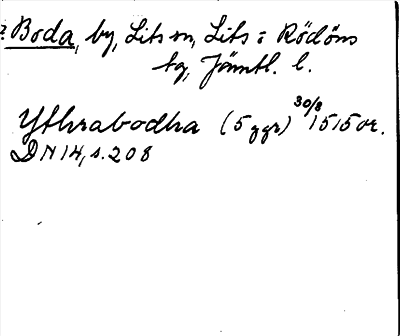 ? Boda, by, Lits sn, Lits o Rödöns
tg, Jämtl. l.
Ythrabodha (5 ggr) 30/8 1515 or.
DN 14, s. 208